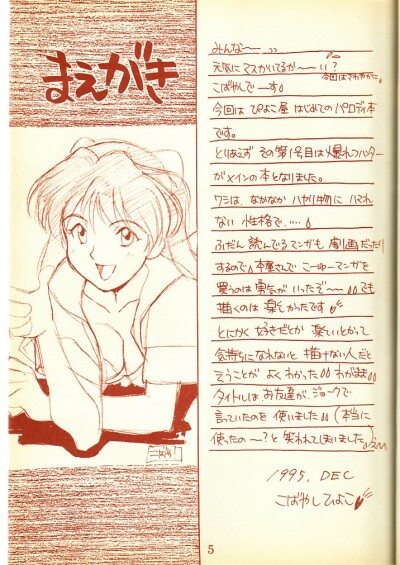 まえがき
みんな〜〜
元気にマスかいてるか〜〜い?
今回はさわやかに。
こばやんで〜す。
今回は ぴよこ屋 はじめての パロディ本
です。
とりあえず その第1号目は爆れつハンター
がメインの本となりました。
ワシは、なかなか ハヤリ物に ハマれ
ない 性格で、……
ふだん 読んでるマンガも 劇画だったり
するので 本屋さんで こーゆーマンガを
買うのは 勇気が いったぞ〜〜 でも
描くのは 楽しかったです
とにかく 好きだとか 楽しいとかって
気持ちに なれないと 描けない人だと
そうことが よく わかった わがまま
タイトルは、お友達が、ジョークで
言っていたのを 使いました (本当に
使ったの〜? と 笑われてしまいました)
1995. DEC
こばやしひよこ
5